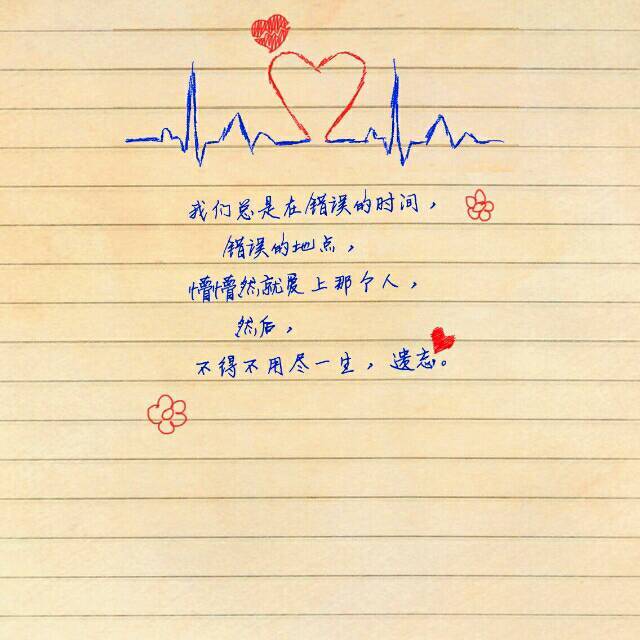 我们总是在错误的时间，
错误的地点，
懵懵然就爱上那个人，
然后，
不得不用尽一生，遗忘。